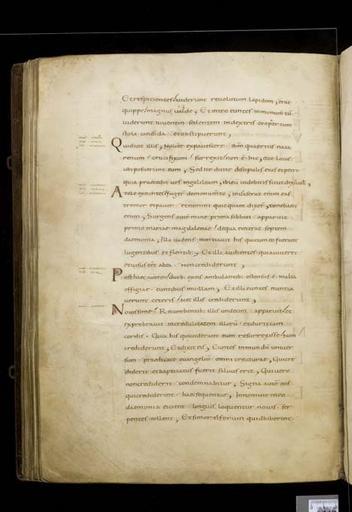 Et respicientes uiderunt reuolutum lapidem, erat
quippe magnus ualde, Et introeuntes monumentum
uiderunt iuuenem sedentem in dextris coopertum
stola candida et obstipuerunt,
Qui dicit illis, Nolite expauescere ihm quaeritis naza
renum crucifixum surrexit non est hic, ecce locus
ubi posuerunt eum, Sed ite dicite discipulis eius et petro
quia praecedit uos in galilaeam, ibi eum uidebitis sicut dixit uobis,
At illae exeuntes fugerunt de monumento, inuaserat enim eas
tremor et pauor et nemini quicquam dixerunt, timebant
enim, Surgens autem mane prima sabbati apparuit
primo mariae magdalenae de qua eiecerat septem
daemonia, Illa uadens nuntiauit his qui cum eo fuerant
lugentibus et flentibus, Et illi audientes quia uiueret
et uisus esset ab ea non crediderunt,
Post haec autem duobus ex eis ambulantibus ostensus est in alia
effigie euntibus in uillam, Et illi euntes nuntia
uerunt ceteris nec illis crediderunt,
Nouissime recumbentibus illis undecim apparuit, et
exprobrauit incredulitatem illorum et duritiam
cordis quia his qui uiderant eum resurrexisse non
crediderunt, Et dixit eis, Euntes in mundum uniuer
sum praedicate euangelium omni creaturae, Qui cre
diderit et baptizatus fuerit saluus erit, Qui uero
non crediderit condemnabitur, Signa autem eos
qui crediderint haec sequentur, In nomine meo
daemonia eicient linguis loquentur nouis ser
pentes tollent, Et si mortiferum quid biberint